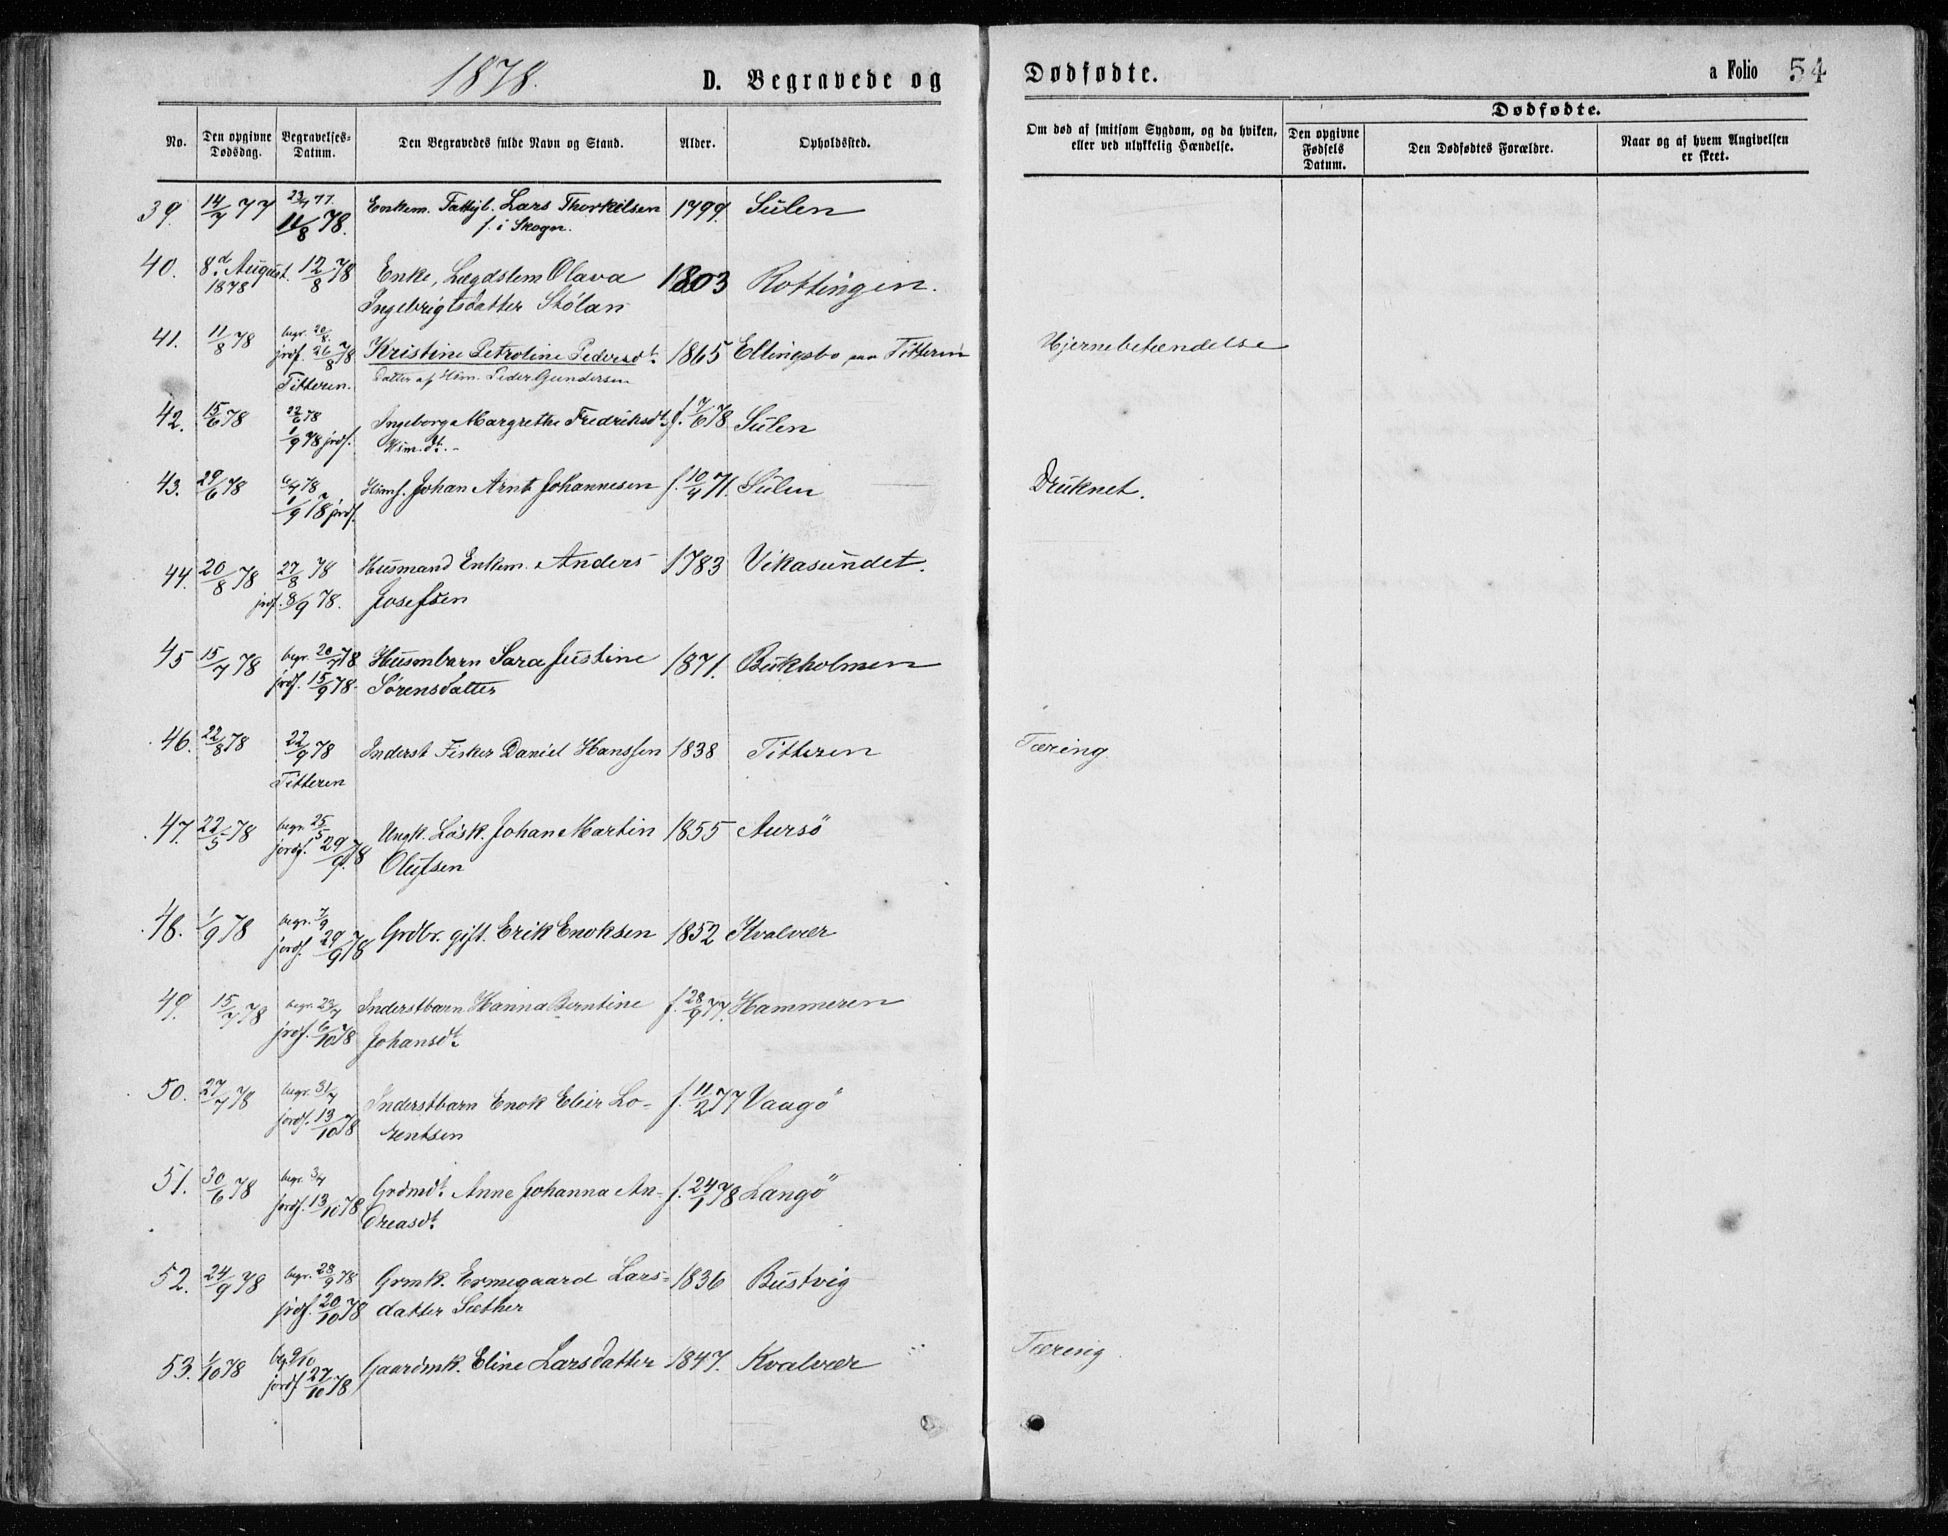 1878.
D. Begravede og
Dødfødte.
a Folio 54
No.
Den opgivne Dødsdag.
Begravelses-Datum.
Den Begravedes fulde Navn og Stand.
Alder.
Opholdssted.
Om død af smitsom Sygdom, og da hvilken, eller ved ulykkelig Hændelse.
Dødfødte.
Den opgivne Fødsels Datum.
Den Dødfødtes Forældre.
Naar og af hvem Angivelsen er skeet.
39. 14/7 77 23/7 77. Enkem. Fattigl. Lars Thorkilsen 1799. Sulen
11/8 78. f. i Skogn.
40. 8d August. 12/8 78 Enke, Lægdslem Olava 1803 Rottingen.
1878 Ingebrigtsdatter Stølan
41. 11/8 78 begr. 20/8 Kristine Petroline Pedersdt. 1865 Ellingsbo paa Titteren Hjernebetændelse
jrdf. 26/8 78 Datter af Hsm. Peder Gundersen
Titteren.
42. 15/6 78 22/6 78 Ingeborg Margrethe Fredriksdt. f. 7/6 78 Sulen
1/9 78 jrdf. Hsm. dt.
43. 29/6 78 6/7 78 Johan Arnt Johannesen f. 10/4 71. Sulen Druknet.
1/9 78 jrdf.
44. 20/8 78 27/8 78 Husmand Enkem. Anders 1783 Vikasundet.
jrdf. 8/9 78. Josefsen
45 15/7 78 begr. 20/7 78 Husmbarn Sara Justine 1871. Bukholmen
jrdf. 15/9 78. Sørensdatter
46. 22/8 78 22/9 78 Inderst Fisker Daniel Hanssen 1838 Titteren Tæring.
Titteren
47. 22/5 78 begr. 25/5 Ungk. Løsk. Johan Martin 1855 Aursö
jordf. 29/9 78 Olufsen
48. 1/9 78 begr. 7/9 Grdbr. gift. Erik Enoksen 1852 Kvalvær
jordf. 29/9 78
49. 15/7 78 begr. 23/7 Inderstbarn Hanna Berntine f. 28/9 77. Hammeren
jrdf. 6/10 78 Johansdt.
50. 27/7 78 begr. 31/7 Inderstbarn Enok Lo- f. 11/2 77 Vaagö
jordf. 13/10 78 rentsen
51. 30/6 78 begr. 3/7 Grdmdt. Anne Johanna An- f. 24/1 78 Langö
jordf. 13/10 78 dreasdt.
52. 24/9 78 begr. 28/9 78 Grmk. Ermegaard Lars- 1836 Bustvig
jrdf. 20/10 78 datter Sæther
53. 1/10 78 beg. 9/10 Gaardmk. Eline Larsdatter 1847. Kvalvær Tæring
jordf 27/10 78